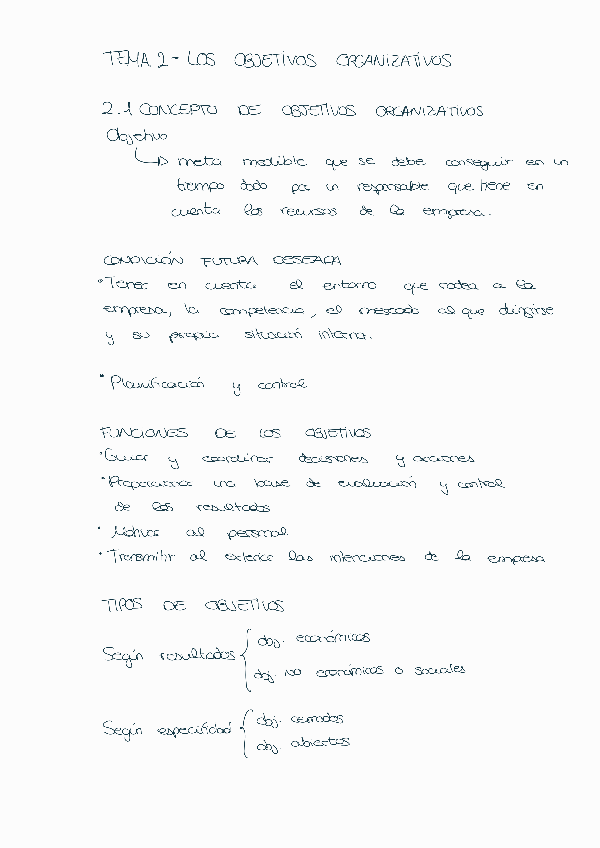 TEMA 2 - LOS OBJETIVOS ORGANIZATIVOS
2.1 CONCEPTO DE OBJETIVOS ORGANIZATIVOS
Objetivo
↳ meta medible que se debe conseguir en un
tiempo dado por un responsable que tiene en
cuenta los recursos de la empresa.
CONDICIÓN FUTURA DESEADA
• Tener en cuenta el entorno que rodea a la
empresa, la competencia, el mercado al que dirigirse
y su propia situación interna.
• Planificación y control
FUNCIONES DE LOS OBJETIVOS
• Guiar y coordinar decisiones y acciones
• Proporcionar una base de evaluación y control
de los resultados
• Motivar al personal
• Transmitir al exterior las intenciones de la empresa
TIPOS DE OBJETIVOS
Según resultados { obj. económicos
obj. no económicos o sociales
Según especifidad { obj. cerrados
obj. abiertos